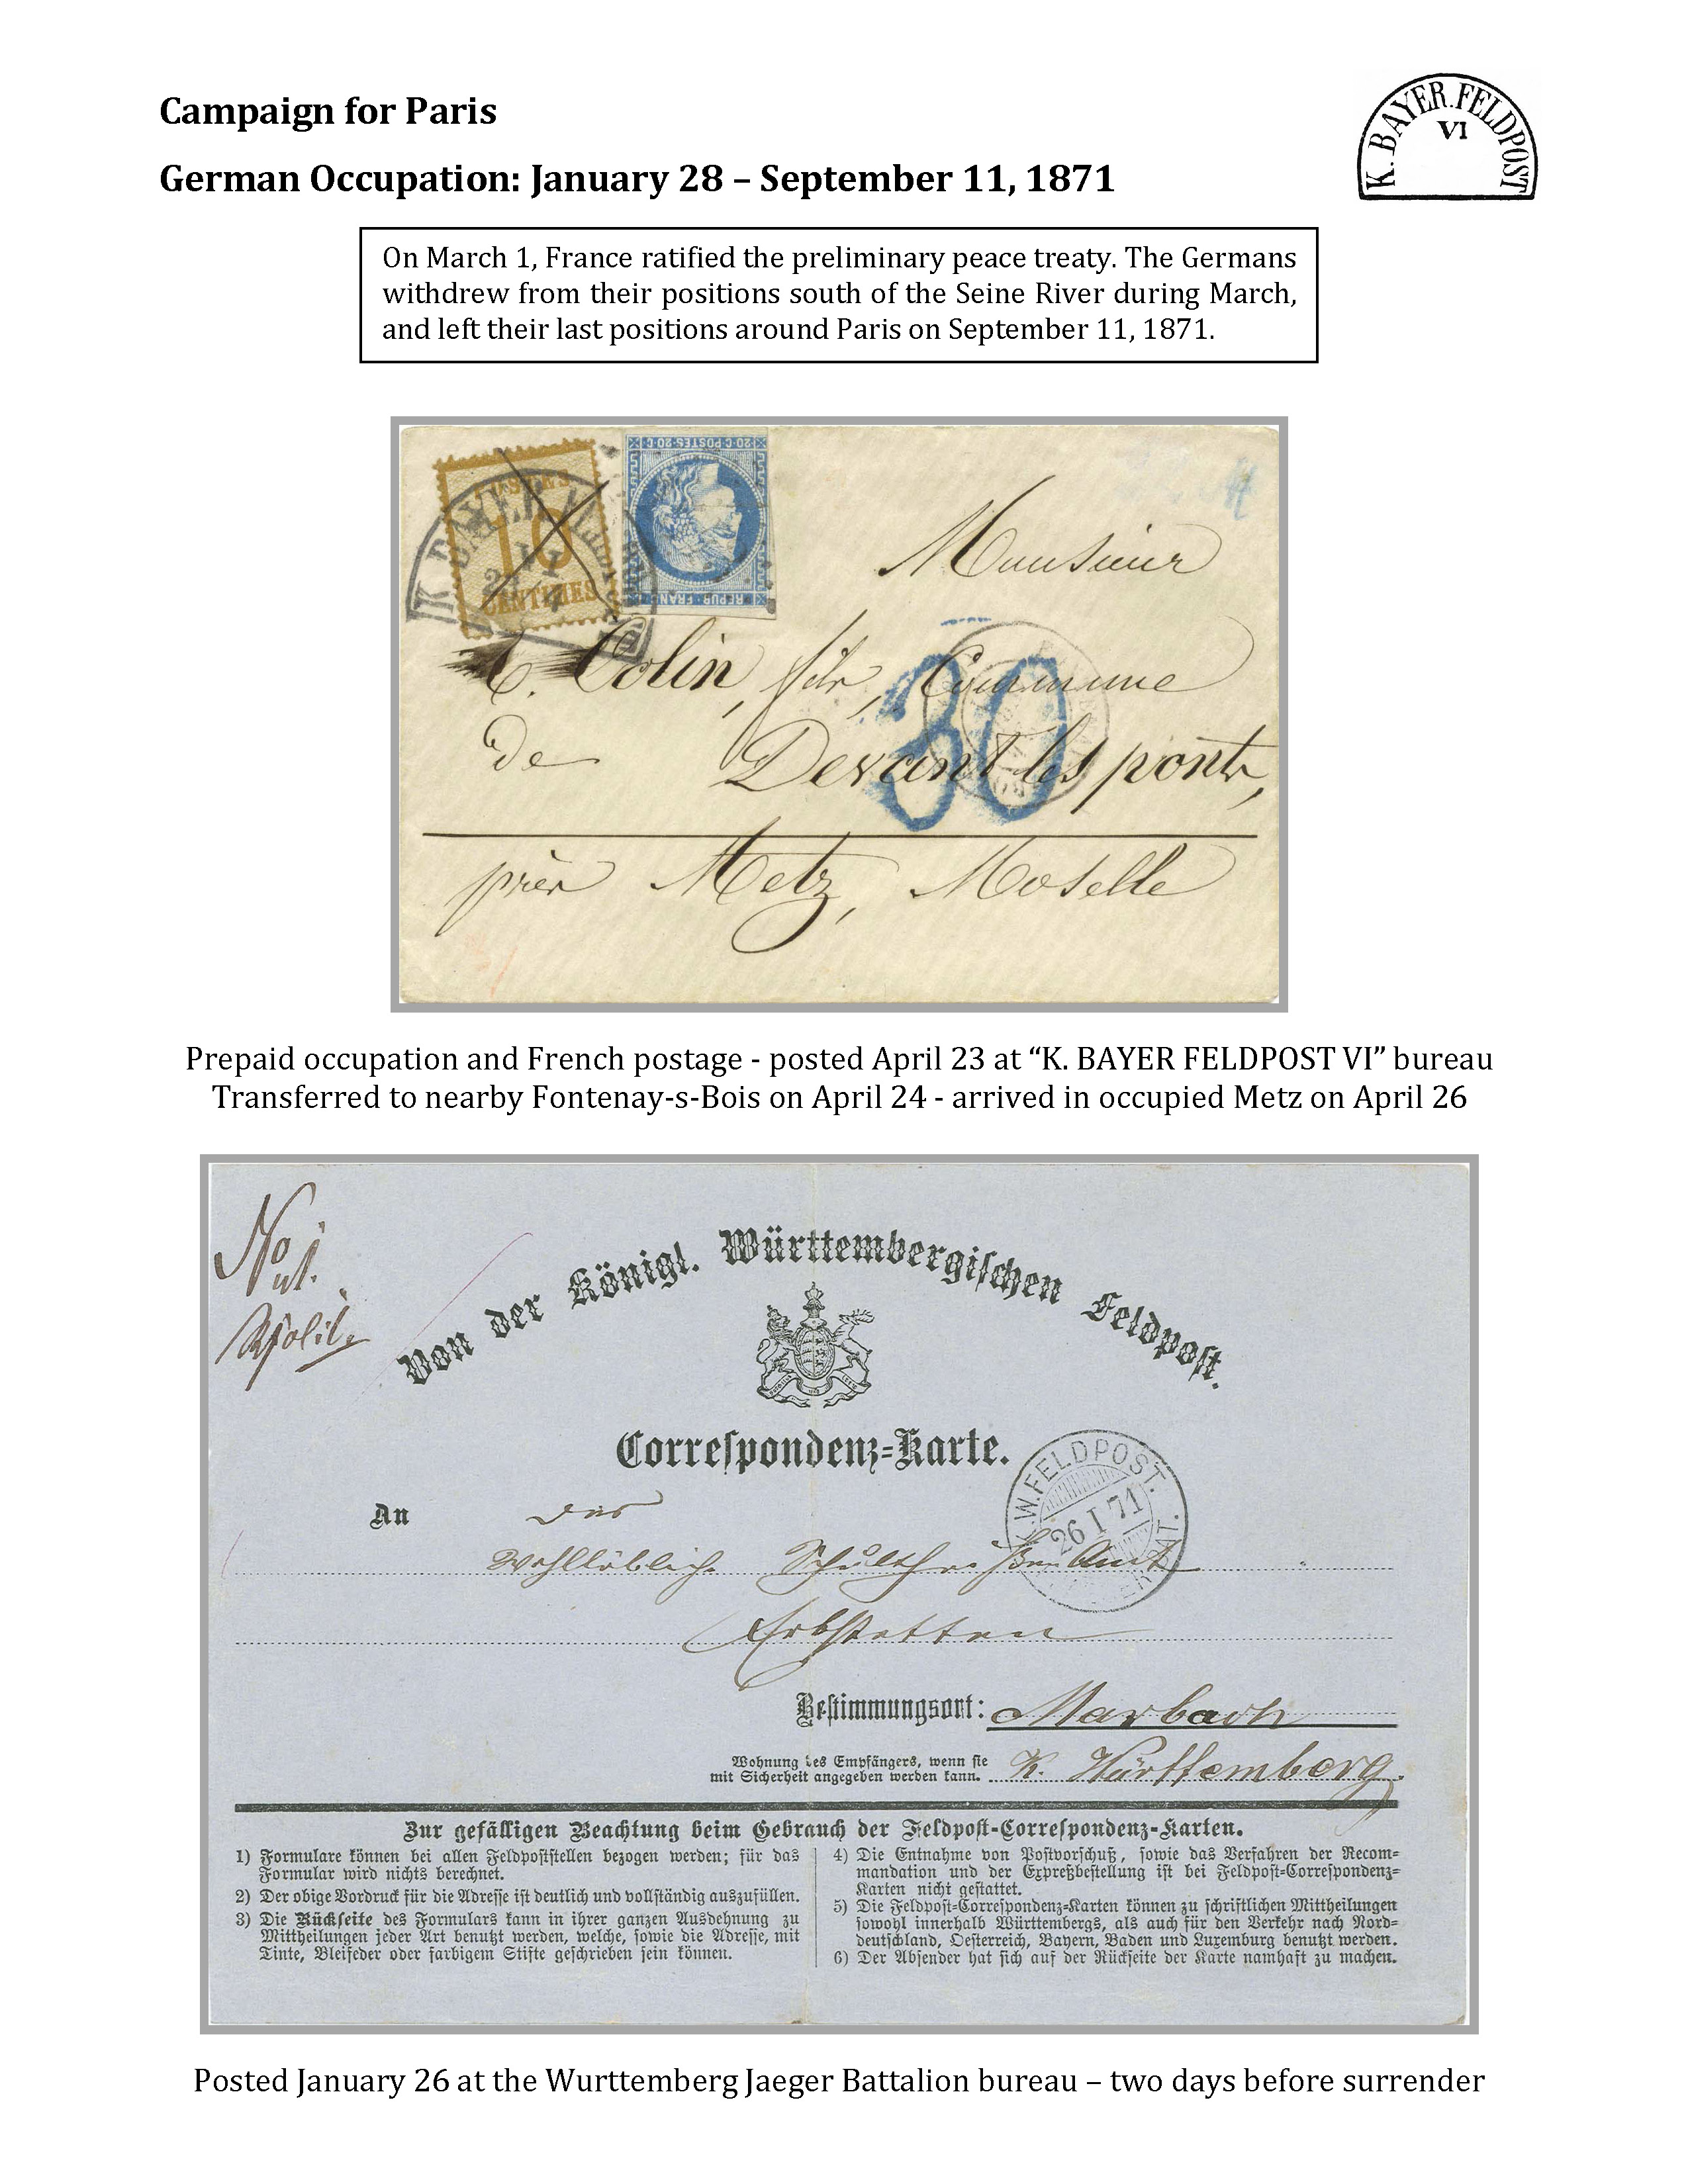 Campaign for Paris
German Occupation: January 28 – September 11, 1871
K. BAYER. FELDPOST
VI
On March 1, France ratified the preliminary peace treaty. The Germans
withdrew from their positions south of the Seine River during March,
and left their last positions around Paris on September 11, 1871.
10
CENTIMES
20·C·POSTES·20·C
REPUB·FRANC
K. BAYER
Monsieur
C. Colin, fils, Commune
30
de Devant les ponts,
près Metz, Moselle
Prepaid occupation and French postage - posted April 23 at “K. BAYER FELDPOST VI” bureau
Transferred to nearby Fontenay-s-Bois on April 24 - arrived in occupied Metz on April 26
No 1.
Von der Königl. Württembergischen Feldpost.
Correspondenz-Karte.
K.W.FELDPOST.
26 I 71
An das
Wohllöbliche Schultheißen Amt
Erbstetten
Bestimmungsort: Marbach
Wohnung des Empfängers, wenn sie
mit Sicherheit angegeben werden kann. K. Württemberg.
Zur gefälligen Beachtung beim Gebrauch der Feldpost-Correspondenz-Karten.
1) Formulare können bei allen Feldpoststellen bezogen werden; für das
Formular wird nichts berechnet.
2) Der obige Vordruck für die Adresse ist deutlich und vollständig auszufüllen.
3) Die Rückseite des Formulars kann in ihrer ganzen Ausdehnung zu
Mittheilungen jeder Art benutzt werden, welche, sowie die Adresse, mit
Tinte, Bleifeder oder farbigem Stifte geschrieben sein können.
4) Die Entnahme von Postvorschuß, sowie das Verfahren der Recom-
mandation und der Expreßbestellung ist bei Feldpost-Correspondenz-
Karten nicht gestattet.
5) Die Feldpost-Correspondenz-Karten können zu schriftlichen Mittheilungen
sowohl innerhalb Württembergs, als auch für den Verkehr nach Nord-
deutschland, Oesterreich, Bayern, Baden und Luxemburg benutzt werden.
6) Der Absender hat sich auf der Rückseite der Karte namhaft zu machen.
Posted January 26 at the Wurttemberg Jaeger Battalion bureau – two days before surrender